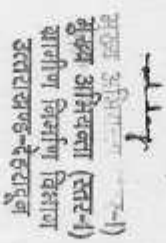 मुख्य अभि -1)
मुख्य अभियन्ता (स्तर-1)
ग्रामीण निर्माण विभाग
उत्तराखण्ड-देहरादून